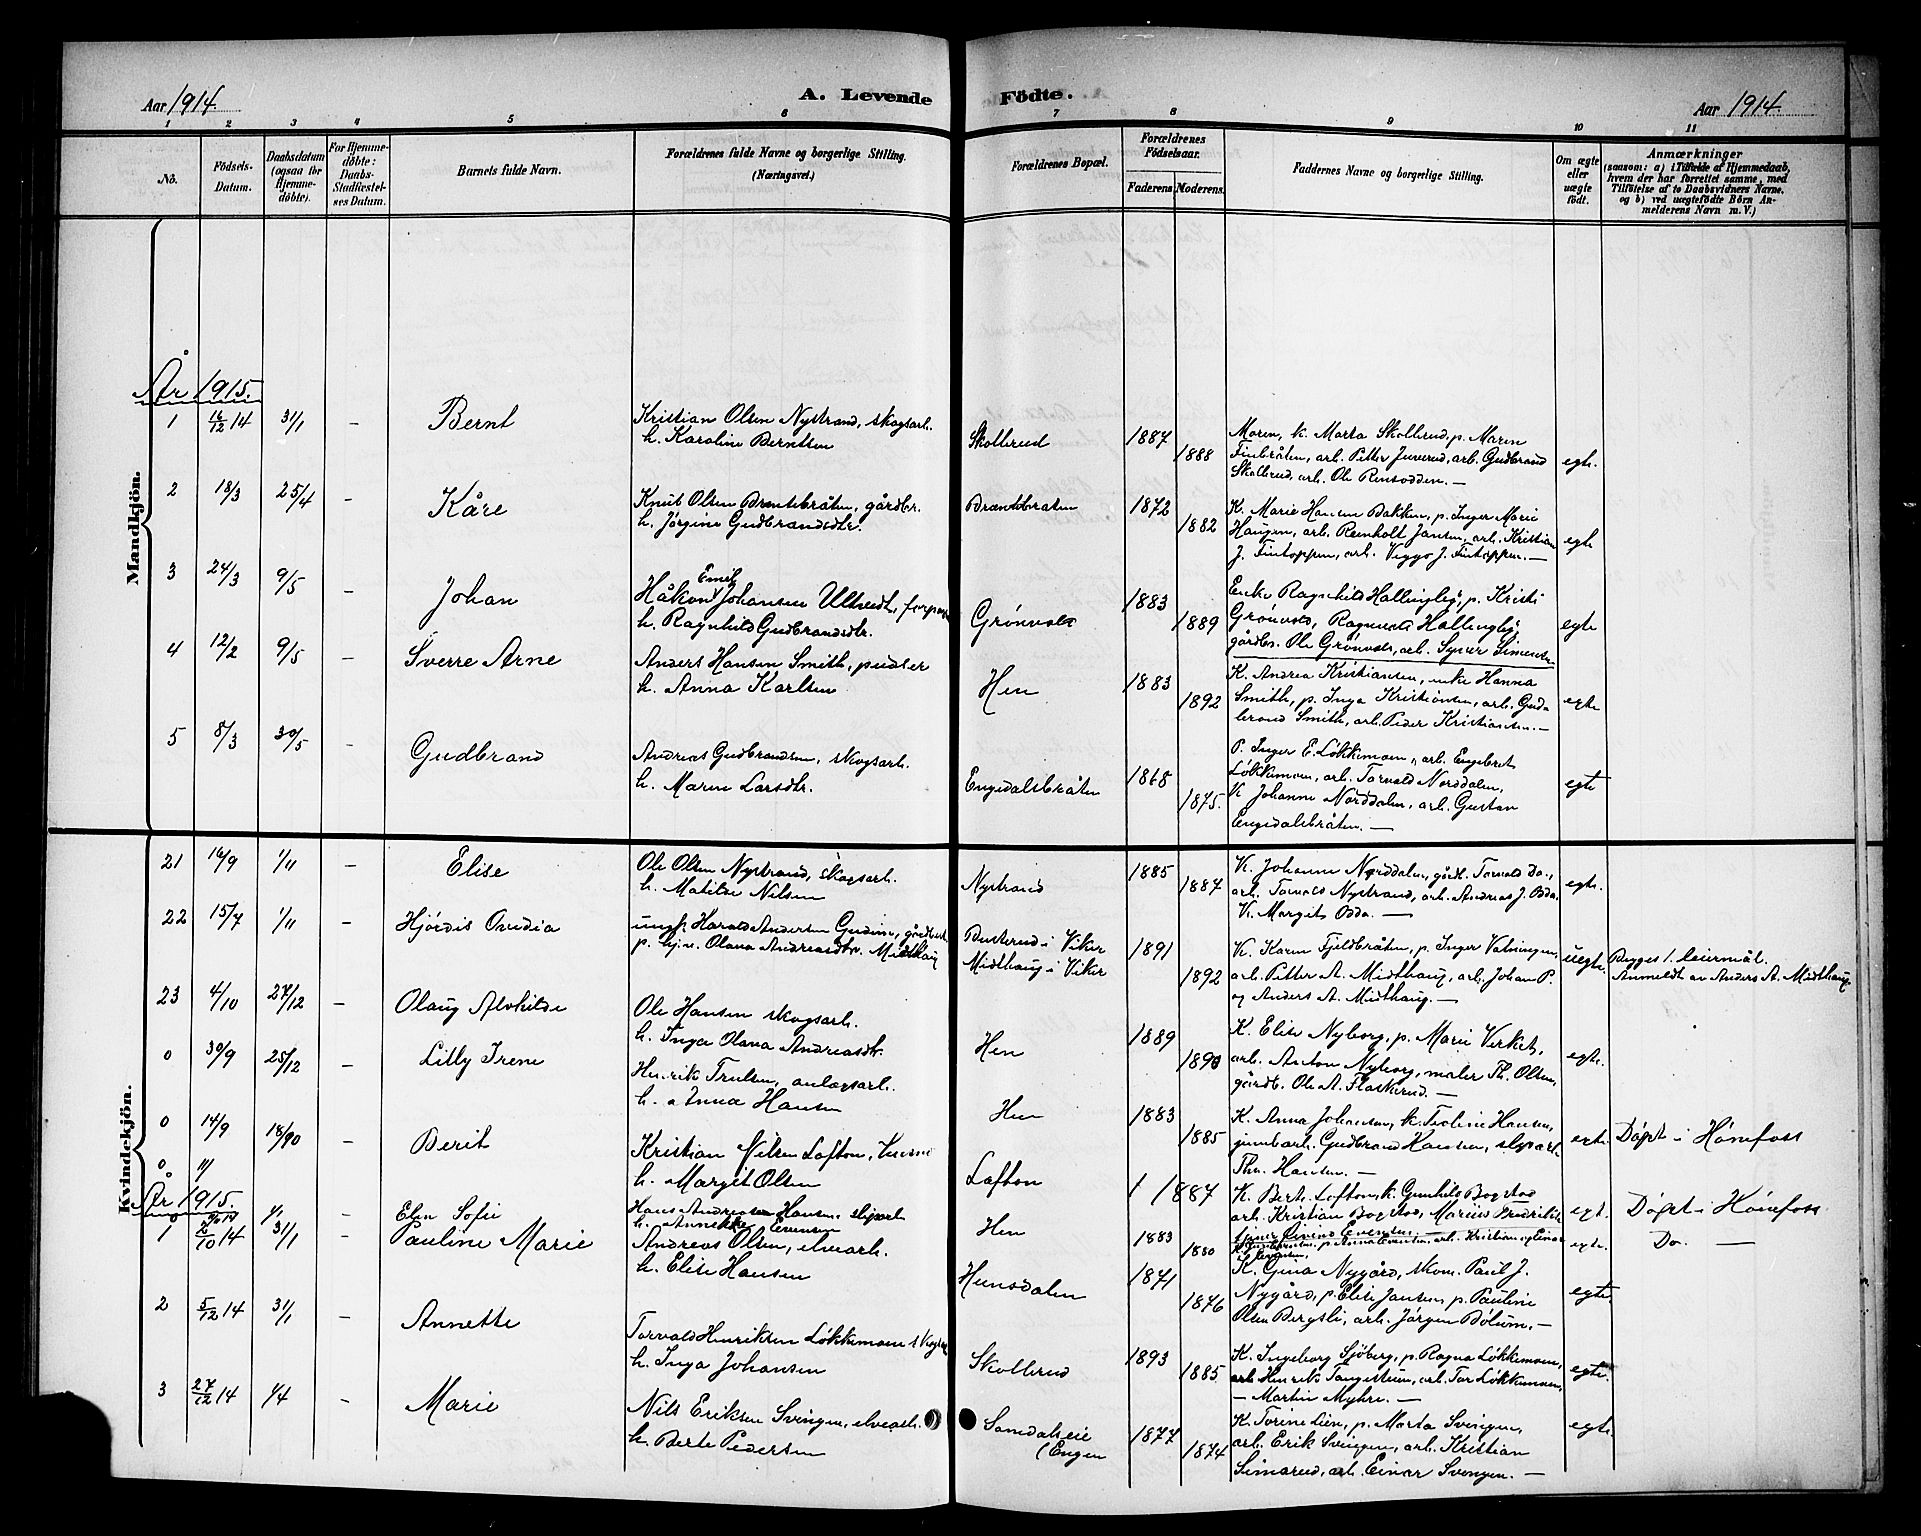 Aar 1914.
A. Levende Födte.
Aar 1914.
1 2 3 4 5 6 7 8 9 10 11
No.
Födsels-
Datum.
Daabsdatum
(ogsaa for
Hjemme-
døbte).
For Hjemme-
døbte:
Daabs-
Stadfæstel-
ses Datum.
Barnets fulde Navn.
Forældrenes fulde Navne og borgerlige Stilling.
(Næringsvei.)
Forældrenes Bopæl.
Forældrenes
Födselsaar.
Faderens Moderens.
Faddernes Navne og borgerlige Stilling.
Om ægte
eller
uægte
født.
Anmærkninger
(saasom: a) i Tilfælde af Hjemmedaab,
hvem der har forrettet samme, med
Tilföielse af to Daabsvidners Navne.
og b) ved uægtefödte Börn An-
melderens Navn m. V.)
Mandkjön.
År 1915.
1 16/12 14 31/1 - Bernt
Kristian Olsen Nystrand, skogsarb.
h. Karoline Berntsen
Skollerud 1887 1888
Maren, k. Marta Skollerud, p. Maren
Finbråten, arb. Petter Juverud, arb. Gudbrand
Skollerud, arb. Ole Rensodden. —
egte.
2 18/3 25/4 - Kåre
Knut Olsen Brentebråten, gårdbr.
h. Jørgine Gudbrandsdtr.
Brentebråten 1872 1882
K. Marie Hansen Bakken, p. Inger Marie
Haugen, arb. Reinholt Jansen, arb. Kristian
J. Fintoppen, arb. Viggo J. Fintoppen. —
egte
3 24/3 9/5 - Johan
Håkon Emil Johansen Ultvedt, forpagt
h. Ragnhild Gudbrandsdtr.
Grønvold 1883 1889
Enke Ragnhild Hallingby, p. Kristi
Grønvold, Ragnvald Hallingby,
gårdbr. Ole Grønvold, arb. Syver Simensen
egte
4 12/2 9/5 - Sverre Arne
Anders Hansen Smith, pudser
h. Anna Karlsen
Hen 1883 1892
K. Andrea Kristiansen, enke Hanna
Smith, p. Inga Kristiansen, arb. Gud-
brand Smith, arb. Peder Kristiansen. —
egte
5 8/3 30/5 - Gudbrand
Andreas Gudbrandsen, skogsarb.
h. Maren Larsdtr.
Engedalsbråten 1868 1875.
P. Inger E. Løkkimoen, arb. Engebret
Løkkimoen, arb. Torvald Norddalen,
K. Johanne Norddalen, arb. Gustav
Engedalsbråten. —
egte
Kvindekjön.
21 16/9 1/11 - Elise
Ole Olsen Nystrand, skogsarb.
h. Matilde Nilsen
Nystrand 1885 1887
K. Johanne Norddalen, gårdb. Torvald Do.,
arb. Torvald Nystrand, arb. Andreas J. Odda,
K. Margit Odda. —
egte.
22 15/7 1/11 - Hjørdis Ovidia
ungk. Harald Andersen
p. Olava Andreasdtr. Midthaug
Busterud i Viker
Midthaug i Viker
1891 1892
K. Karen Fjeldbråten, p. Inger Vatningen,
arb. Petter A. Midthaug, arb. Johan P.
og Anders A. Midthaug. —
uegte.
Begges 1. leiermål.
Anmeldt av Anders A. Midthaug.
23 4/10 27/12 - Olaug Alvhilde
Ole Hansen skogsarb.
h. Inga Olava Andreasdtr.
Hen 1889 1890
K. Elise Nyborg, p. Marie Virket,
arb. Anton Nyborg, maler Th. Olsen,
gårdb. Ole A. Flaskerud. —
egte.
0 30/9 25/12 - Lilly Irene
Henrik Trulsen, anlægsarb.
h. Anna Hansen
Hen 1883 1885
K. Anna Johansen, k. Teoline Hansen,
arb. Gudbrand Hansen, sliparb.
Thv. Hansen. —
egte. Døpt i Hønefoss
0 14/9 18/90 - Berit
Kristian Nilsen Lofton,
h. Margit Olsen
Lofton 1887
K. Berte Lofton, k. Gunhild Bogstad
arb. Kristian Bogstad, Marius Fredriksen
egt. Døpt i Hønefoss
År 1915.
0 - Elen Sofie
Hans Andreas Hansen sliparb
h. Annekke Evensen
Hen 1883 1880
egte. Do. —
1 8/10 14 31/1 Pauline Marie
Andreas Olsen, elvearb.
h. Elise Hansen
Hensdalen 1871 1876
K. Gina Nygård, skom. Paul J.
Nygård, p. Elise Jansen, p. Pauline
Olsen Bergsli, arb. Jørgen Bølum. —
egte.
2 5/12 14 31/1 - Annette
Torvald Henriksen Løkkimoen skogsa
h. Inga Johansen
Skollerud 1893 1885
K. Ingeborg Sjøberg, p. Ragna Løkkimoen,
arb. Henrik Tangetheien, arb. Tor Løkkimoen,
— Martin Myhre. —
egte.
3 27/12 14 1/4 - Marie
Nils Eriksen Svingen, elvearb.
h. Berte Pedersen
Somdaleie
(Engen
1877 1874
K. Torine Lien, p. Marta Svingen,
arb. Erik Svingen, arb. Kristian
Simarud, arb. Einar Svingen. —
egte.